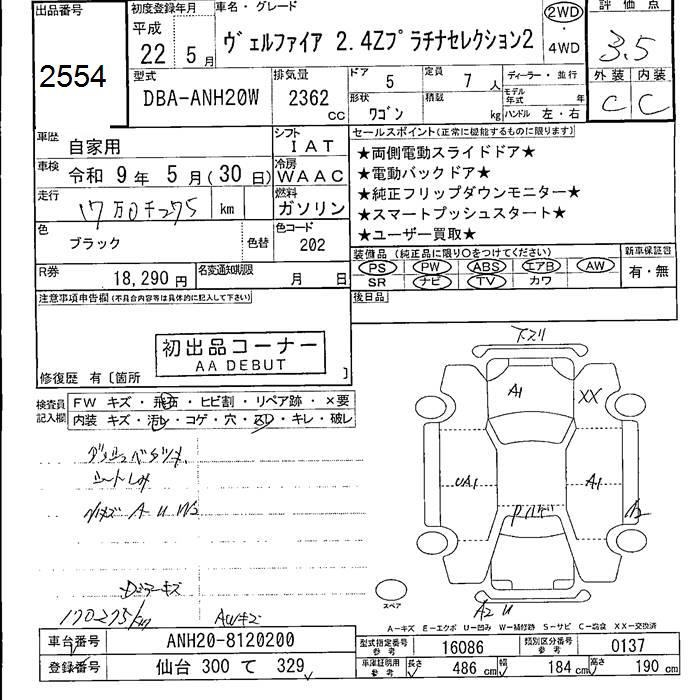 出品番号
2554
初度登録年月
平成
22 5月
車名・グレード
ヴェルファイア 2.4Zプラチナセレクション2
2WD
・
4WD
評価点
3.5
外装 内装
C C
型式
DBA-ANH20W
排気量
2362
cc
ドア 5
定員 7 人
形状 ワゴン
積載 kg
ディーラー・並行
モデル年式 年
ハンドル 左・右
車歴 自家用
シフト IAT
車検 令和 9年 5月(30日)
冷房 WAAC
走行 17万0千275 km
燃料 ガソリン
色 ブラック 色替
色コード 202
R券 18,290円
名変通知期限 月 日
セールスポイント(正常に機能するものに限ります)
★両側電動スライドドア★
★電動バックドア★
★純正フリップダウンモニター★
★スマートプッシュスタート★
★ユーザー買取★
装備品 (純正品に限り○をつけてください)
PS PW ABS エアB AW
SR ナビ TV カワ
新車保証書
有・無
後日品
注意事項申告欄(不具合内容等は具体的に記入して下さい)
初出品コーナー
AA DEBUT
修復歴 有〔箇所 〕
検査員記入欄
FW キズ・飛石・ヒビ割・リペア跡・×要
内装 キズ・汚レ・コゲ・穴・スレ・キレ・破レ
シートしみ
A U W2
170275km
AWキズ
下スリ
A1
XX
UA1
A1
A2
A2 U
スペア
A－キズ E－エクボ U－凹み W－補修跡 S－サビ C－腐食 XX－交換済
車台番号 ANH20-8120200
登録番号 仙台 300 て 329
型式指定番号 参考 16086
類別区分番号 参考 0137
車庫証明用 参考 長さ 486 cm 幅 184 cm 高さ 190 cm